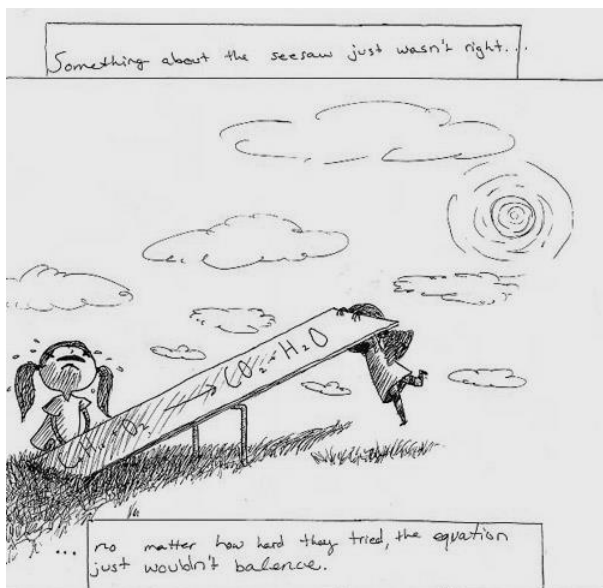 Something about the seesaw just wasn't right...
CH₄ + O₂ → CO₂ + H₂O
... no matter how hard they tried, the equation
just wouldn't balence.